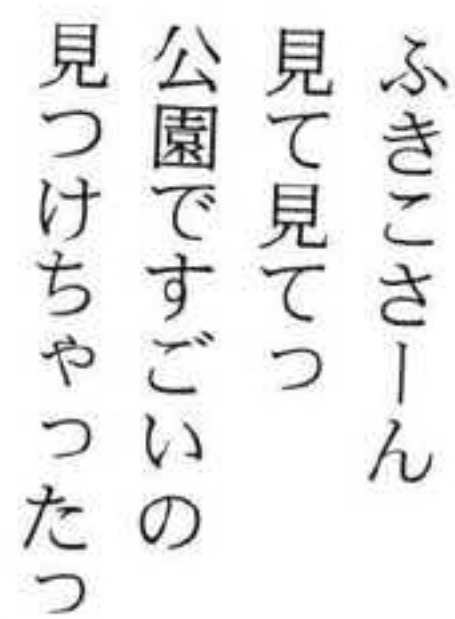 ふきこさーん
見て見てっ
公園ですごいの
見つけちゃったっ